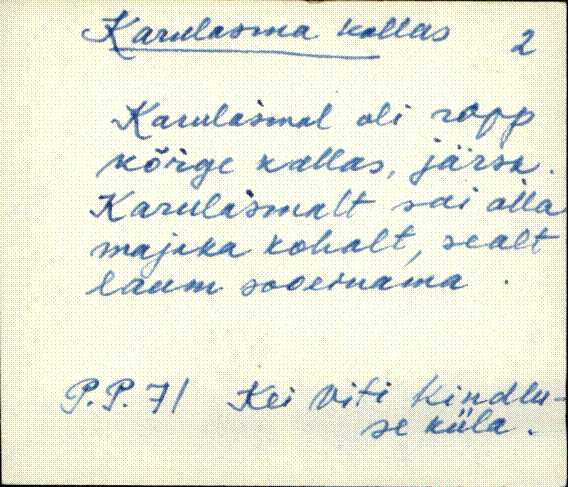 Karulasma kallas 2
Karulasmal oli ropp
kõrge kallas, järsk.
Karulasmalt sai alla
majaka kohalt, sealt
laum sooeinama.
P.P. 71 Kei Viti Kindlu-
se küla.